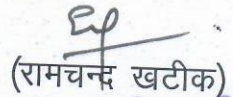 (रामचन्द्र खटीक)